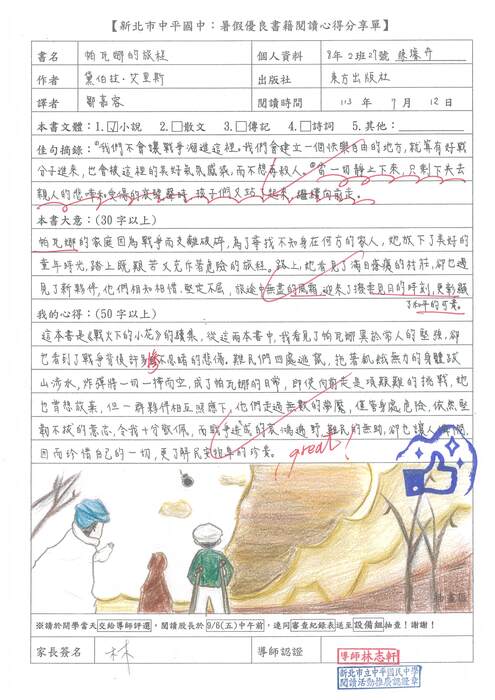 【新北市中平國中：暑假優良書籍閱讀心得分享單】
書名 帕瓦娜的旅程 個人資料 8年2班27號
作者 黛伯拉‧艾里斯 出版社 東方出版社
譯者 鄒嘉容 閱讀時間 113年7月12日
本書文體：1.☑小說 2.□散文 3.□傳記 4.□詩詞 5.其他：
佳句摘錄：①我們不會讓戰爭溜進這裡，我們會建立一個快樂自由的地方，就算有好戰
分子進來，也會被這裡的美好氣氛感染，而不想再殺人。②當一切靜上下來，只剩下失去
親人的悲嘆和受傷的哀號聲時，孩子們又站了起來，繼續向前走。
本書大意：(30字以上)
帕瓦娜的家庭因為戰爭而支離破碎，為了尋找不知身在何方的家人，她放下了美好的
童年時光，踏上既艱苦又充斥著危險的旅程。路上，她看見了滿目瘡痍的村莊，卻也遇
見了新夥伴，他們相知相惜，堅定不屈，旅途中無盡的風霜，迎來了撥雲見日的時刻，更彰顯
了和平的可貴。
我的心得：(50字以上)
這本書是《戰火下的小花》的續集，從這兩本書中，我看見了帕瓦娜異於常人的堅強，卻
也看到了戰爭背後許多慘不忍睹的悲傷。難民們四處逃竄，拖著飢餓無力的身體跋
山涉水，炸彈將一切一掃而空，成了帕瓦娜的日常，即使向前走是項艱難的挑戰，她
也曾想放棄，但一群夥伴相互照應下，他們走過無數的夢魘，僅管身處危險，依然堅
動不拔的意志，令我十分敬佩，而戰爭造成的哀鴻遍野，難民的無助，卻也讓人
因而珍惜自己的一切，更了解民主
great!
※請於開學當天交給導師評選，閱讀股長於9/6(五)中午前，連同審查紀錄表送至設備組抽查！謝謝！
家長簽名 林 導師認證 導師林志軒
新北市立中平國民中學
閱讀活動推廣認證章